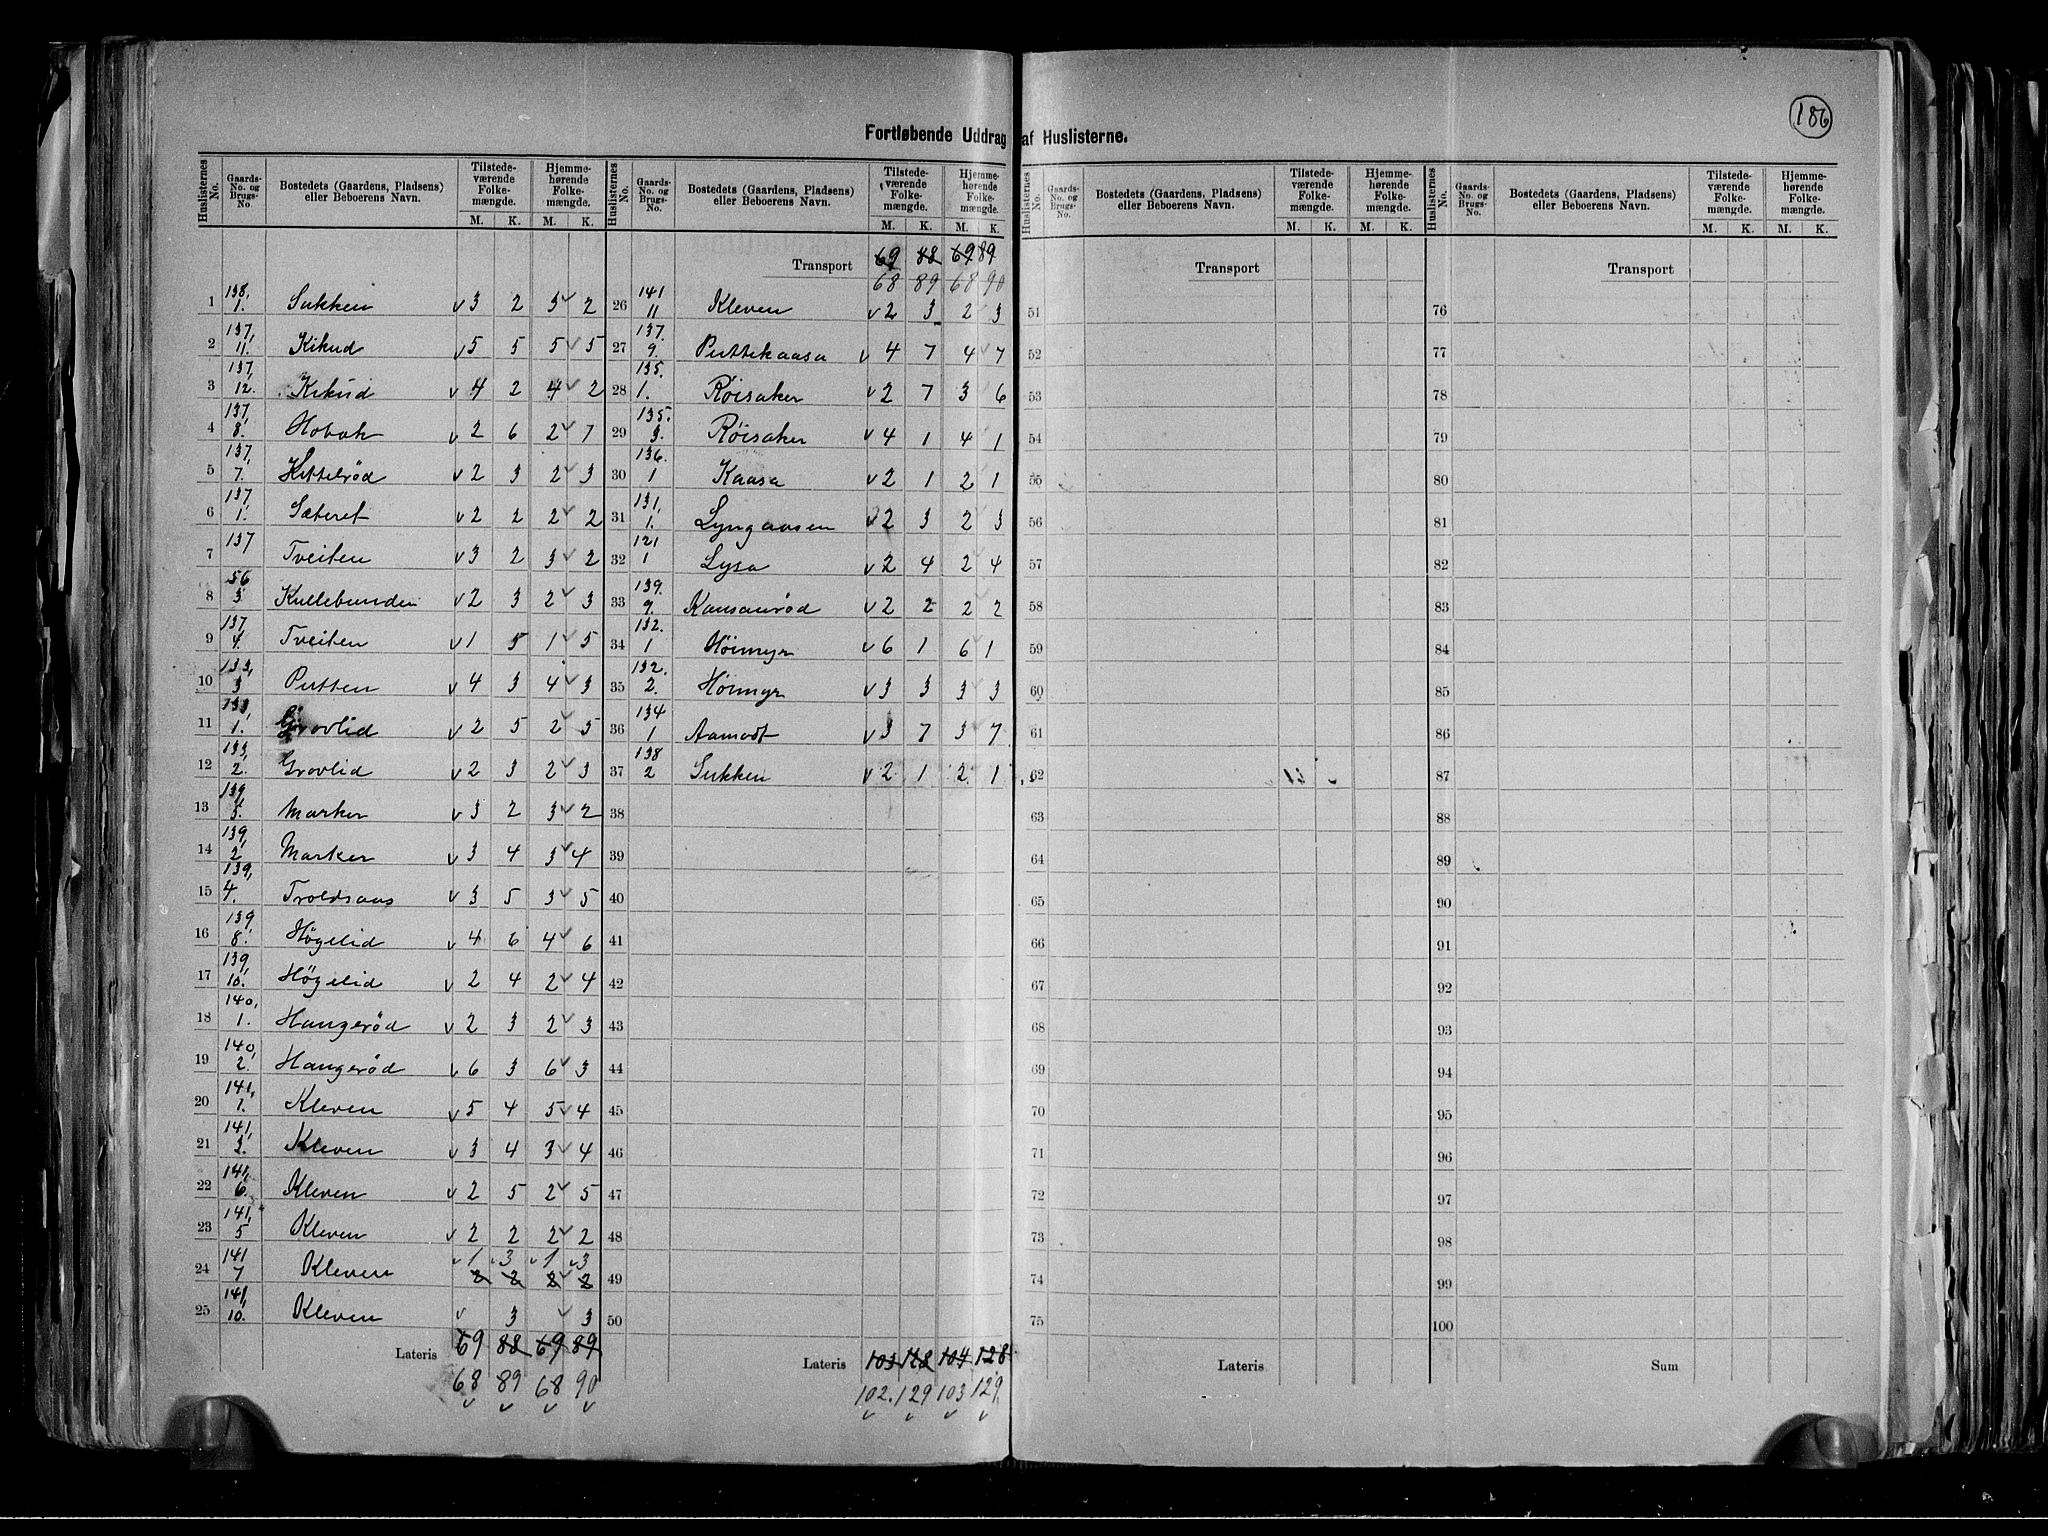 186
Fortløbende Uddrag af Huslisterne.
Huslisternes No. Gaards-No. og Brugs-No. Bostedets (Gaardens, Pladsens) eller Beboerens Navn. Tilstedeværende Folkemængde. M. K. Hjemmehørende Folkemængde. M. K.
1 138, 1. Sukken v 3 2 3 v 2
2 137, 11. Kikud v 5 5 5 v 5
3 137, 12. Kikud v 4 2 4 v 2
4 137, 8. Hobok v 2 6 2 v 7
5 137, 7. Kittelrød v 2 3 2 v 3
6 137, 1. Sæteret v 2 2 2 v 2
7 137 Tveiten v 3 2 3 v 2
8 56 3 Kullebunden v 2 3 2 v 3
9 137, 4. Tveiten v 1 5 1 v 5
10 133, 3 Putten v 4 3 4 v 3
11 133, 1. Grovlid v 2 5 2 v 5
12 133, 2. Grovlid v 2 3 2 v 3
13 139, 5. Marker v 3 2 3 v 2
14 139, 2. Marker v 3 4 3 v 4
15 139, 4. Troldsaas v 3 5 3 v 5
16 139, 8. Høgelid v 4 6 4 v 6
17 139, 10. Høgelid v 2 4 2 v 4
18 140, 1. Haugerød v 2 3 2 v 3
19 140, 2. Haugerød v 6 3 6 v 3
20 141, 1. Kleven v 5 4 5 v 4
21 141, 3. Kleven v 3 4 3 v 4
22 141, 6. Kleven v 2 5 2 v 5
23 141, 5 Kleven v 2 2 2 v 2
24 141 7 Kleven v 1 v 3 v 1 v 3
2 2 2 v 2
25 141, 10. Kleven v 3 v 3
Lateris 69 88 69 89
68 89 68 90
v v v v
Huslisternes No. Gaards-No. og Brugs-No. Bostedets (Gaardens, Pladsens) eller Beboerens Navn. Tilstedeværende Folkemængde. M. K. Hjemmehørende Folkemængde. M. K.
Transport 69 88 69 89
68 89 68 90
26 141 11 Kleven v 2 3 2 v 3
27 137. 9. Puttekaasa v 4 7 4 v 7
28 135. 1. Røisaker v 2 7 3 6
29 135. 3. Røisaker v 4 1 4 1
30 136. 1 Kaasa v 2 1 2 1
31 131, 1. Lyngaasen v 2 3 2 3
32 121 1 Lysa v 2 4 2 4
33 139. 9. Kausaurød v 2 2 2 2
34 132. 1 Høimyr v 6 1 6 1
35 132. 2. Høimyr v 3 3 3 3
36 134 1 Aamodt v 3 7 3 7
37 138 2 Sukken v 2 1 2 1
38
39
40
41
42
43
44
45
46
47
48
49
50
Lateris 103 128 104 128
102. 129 103 129
v v v v
Huslisternes No. Gaards-No. og Brugs-No. Bostedets (Gaardens, Pladsens) eller Beboerens Navn. Tilstedeværende Folkemængde. M. K. Hjemmehørende Folkemængde. M. K.
Transport
51
52
53
54
55
56
57
58
59
60
61
62
63
64
65
66
67
68
69
70
71
72
73
74
75
Lateris
Huslisternes No. Gaards-No. og Brugs-No. Bostedets (Gaardens, Pladsens) eller Beboerens Navn. Tilstedeværende Folkemængde. M. K. Hjemmehørende Folkemængde. M. K.
Transport
76
77
78
79
80
81
82
83
84
85
86
87
88
89
90
91
92
93
94
95
96
97
98
99
100
Sum